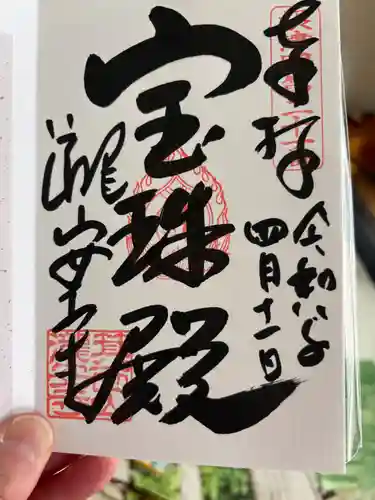 奉拝
令和六年
四月十一日
宝珠殿
瀧安寺